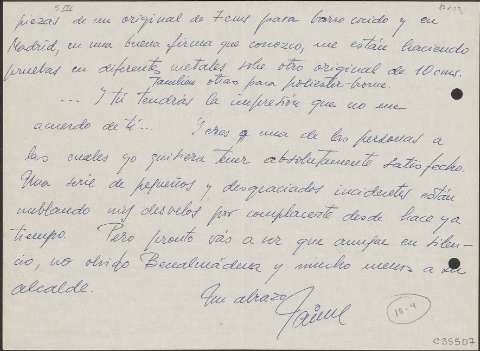 piezas de un original de 7 cms para barro cocido y en
Madrid, en una buena firma que conozco, me están haciendo
pruebas en diferentes metales sobre otro original de 10 cms.
Tambien otras para poliester-bronce.
... Y tú tendrás la impresión que no me
acuerdo de tí... Y eres una de las personas a
las cuales yo quisiera tener absolutamente satisfecho.
Una serie de pequeños y desgraciados incidentes están
nublando mis desvelos por complacerte desde hace ya
tiempo. Pero pronto vás a ver que aunque en silen-
cio, no olvido Benalmádena y mucho menos a su
alcalde.
Un abrazo
Jaime
15-4
C35507